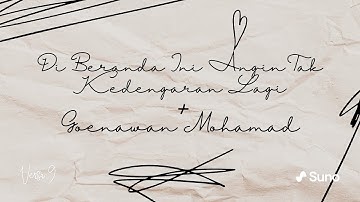 Di Beranda Ini Angin Tak
Kedengaran Lagi
+
Goenawan Mohamad
Suno